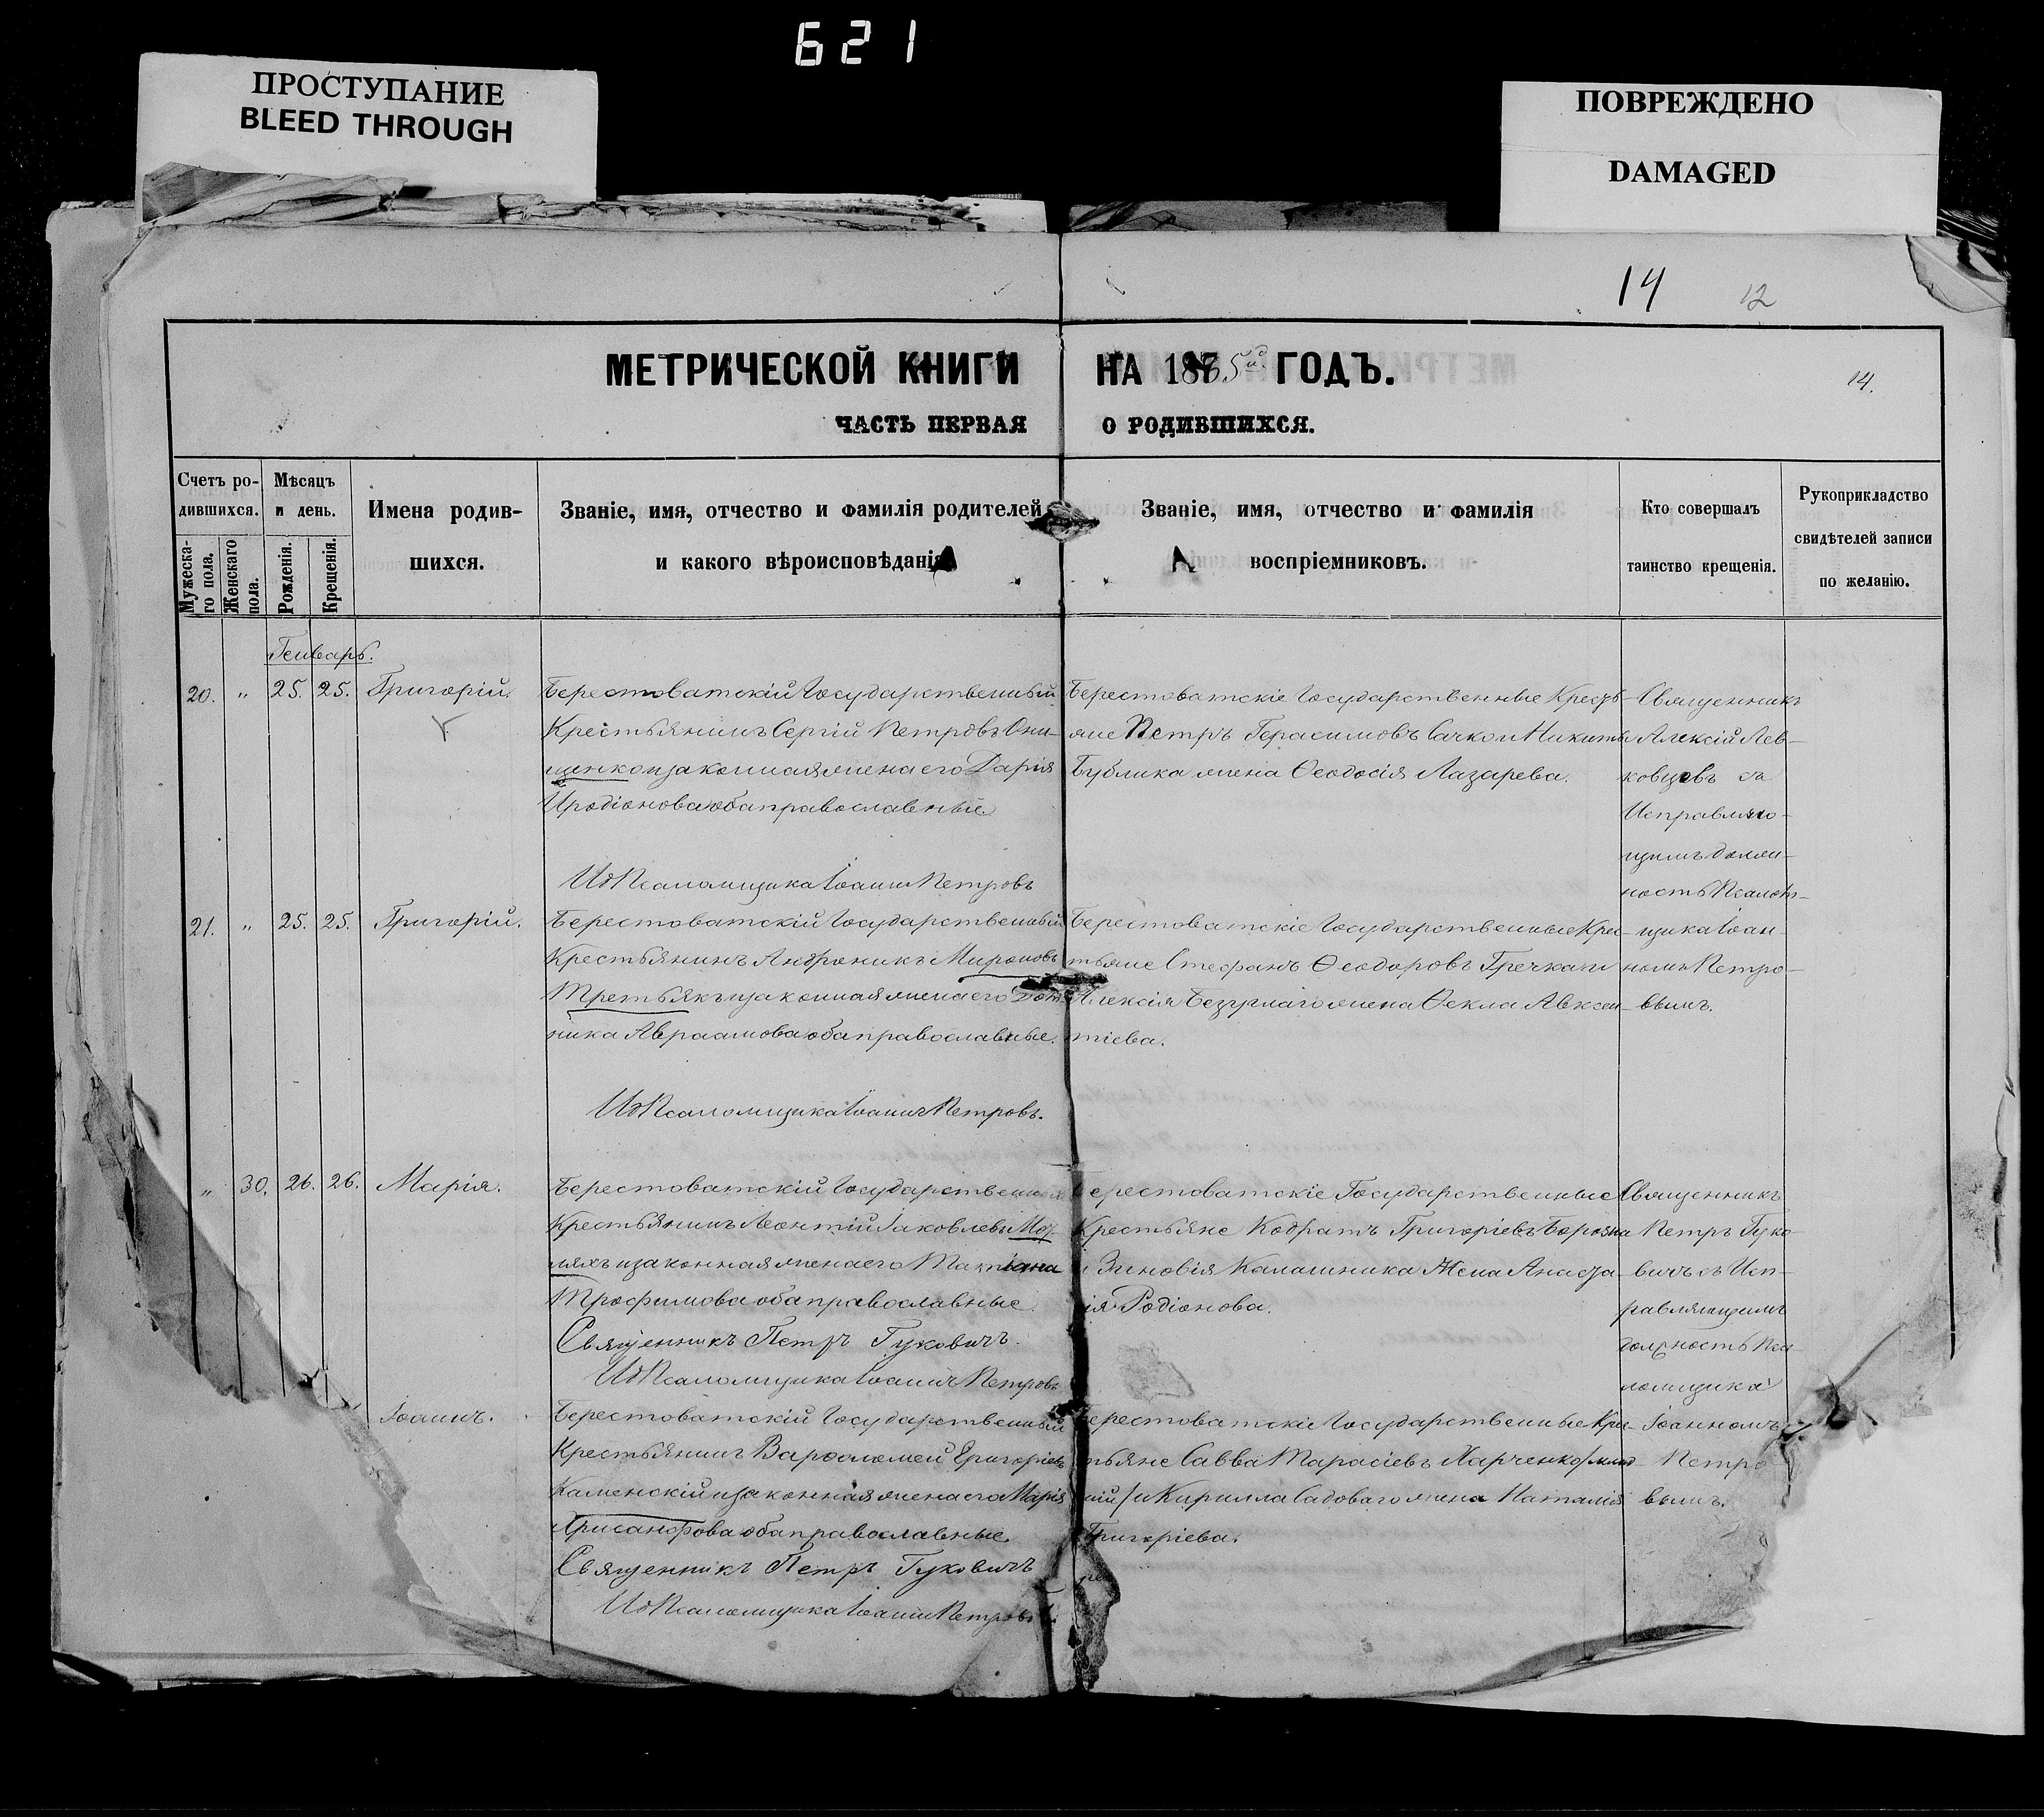 621
ПРОСТУПАНИЕ
BLEED THROUGH
ПОВРЕЖДЕНО
DAMAGED
14 12
МЕТРИЧЕСКОЙ КНИГИ НА 1885й ГОДЪ.
14.
ЧАСТЬ ПЕРВАЯ О РОДИВШИХСЯ.
Счетъ ро-
дившихся.
Мужеска-
го пола.
Женскаго
пола.
Мѣсяцъ
и день.
Рожденія.
Крещенія.
Имена родив-
шихся.
Званіе, имя, отчество и фамилія родителей
и какого вѣроисповѣданія
Званіе, имя, отчество и фамилія
воспріемниковъ.
Кто совершалъ
таинство крещенія.
Рукоприкладство
свидѣтелей записи
по желанію.
Генварь.
20. " 25. 25. Григорій.
Берестоватскій Государственный
Крестьянинъ Сергій Петровъ Они-
щенко и законная жена его Дарія
Иродіонова оба православные
ИдПсаломщика Іоаннъ Петровъ
Берестоватскіе Государственные Кресть-
яне Петръ Герасимовъ Сачко и Никиты
Бублика жена Ѳеодосія Лазарева.
Священникъ
Алексій Лев-
ковцевъ съ
Исправляю-
щимъ долж-
ность Псалом-
щика Іоан-
номъ Петро-
вымъ.
21. " 25. 25. Григорій.
Берестоватскій Государственный
Крестьянинъ Андроникъ Мироновъ
Третьякъ и законная жена его Дом-
ника Авраамова оба православные.
ИдПсаломщика Іоаннъ Петровъ.
Берестоватскіе Государственные Крес-
тьяне Стефанъ Ѳеодоровъ Гречка и
Алексія Безуглаго жена Ѳекла Авксен-
тіева.
" 30. 26. 26. Марія.
Берестоватскій Государственный
Крестьянинъ Леонтій Іаковлевъ
и законная жена его
Трофимова оба православные.
Священникъ Петръ Гуковичъ.
ИдПсаломщика Іоаннъ Петровъ
Берестоватскіе Государственные
Крестьяне Кодратъ Григоріевъ
и Зиновія Калашника Жена
Родіонова.
Священникъ
Петръ Гуко-
вичъ съ Исп-
равляющимъ
должность Пса-
ломщика
Іоанномъ
Петро-
вымъ.
Іоаннъ.
Берестоватскій Государственный
Крестьянинъ Варѳоломей Григоріевъ
Каменскій и законная жена его Марія
Хрисанфова оба православные.
Священникъ Петръ Гуковичъ
ИдПсаломщика Іоаннъ Петровъ.
Берестоватскіе Государственные Крес-
тьяне Савва Тарасіевъ Харченко /млад-
шій/ и Кирилла Садоваго жена Наталія
Григоріева.